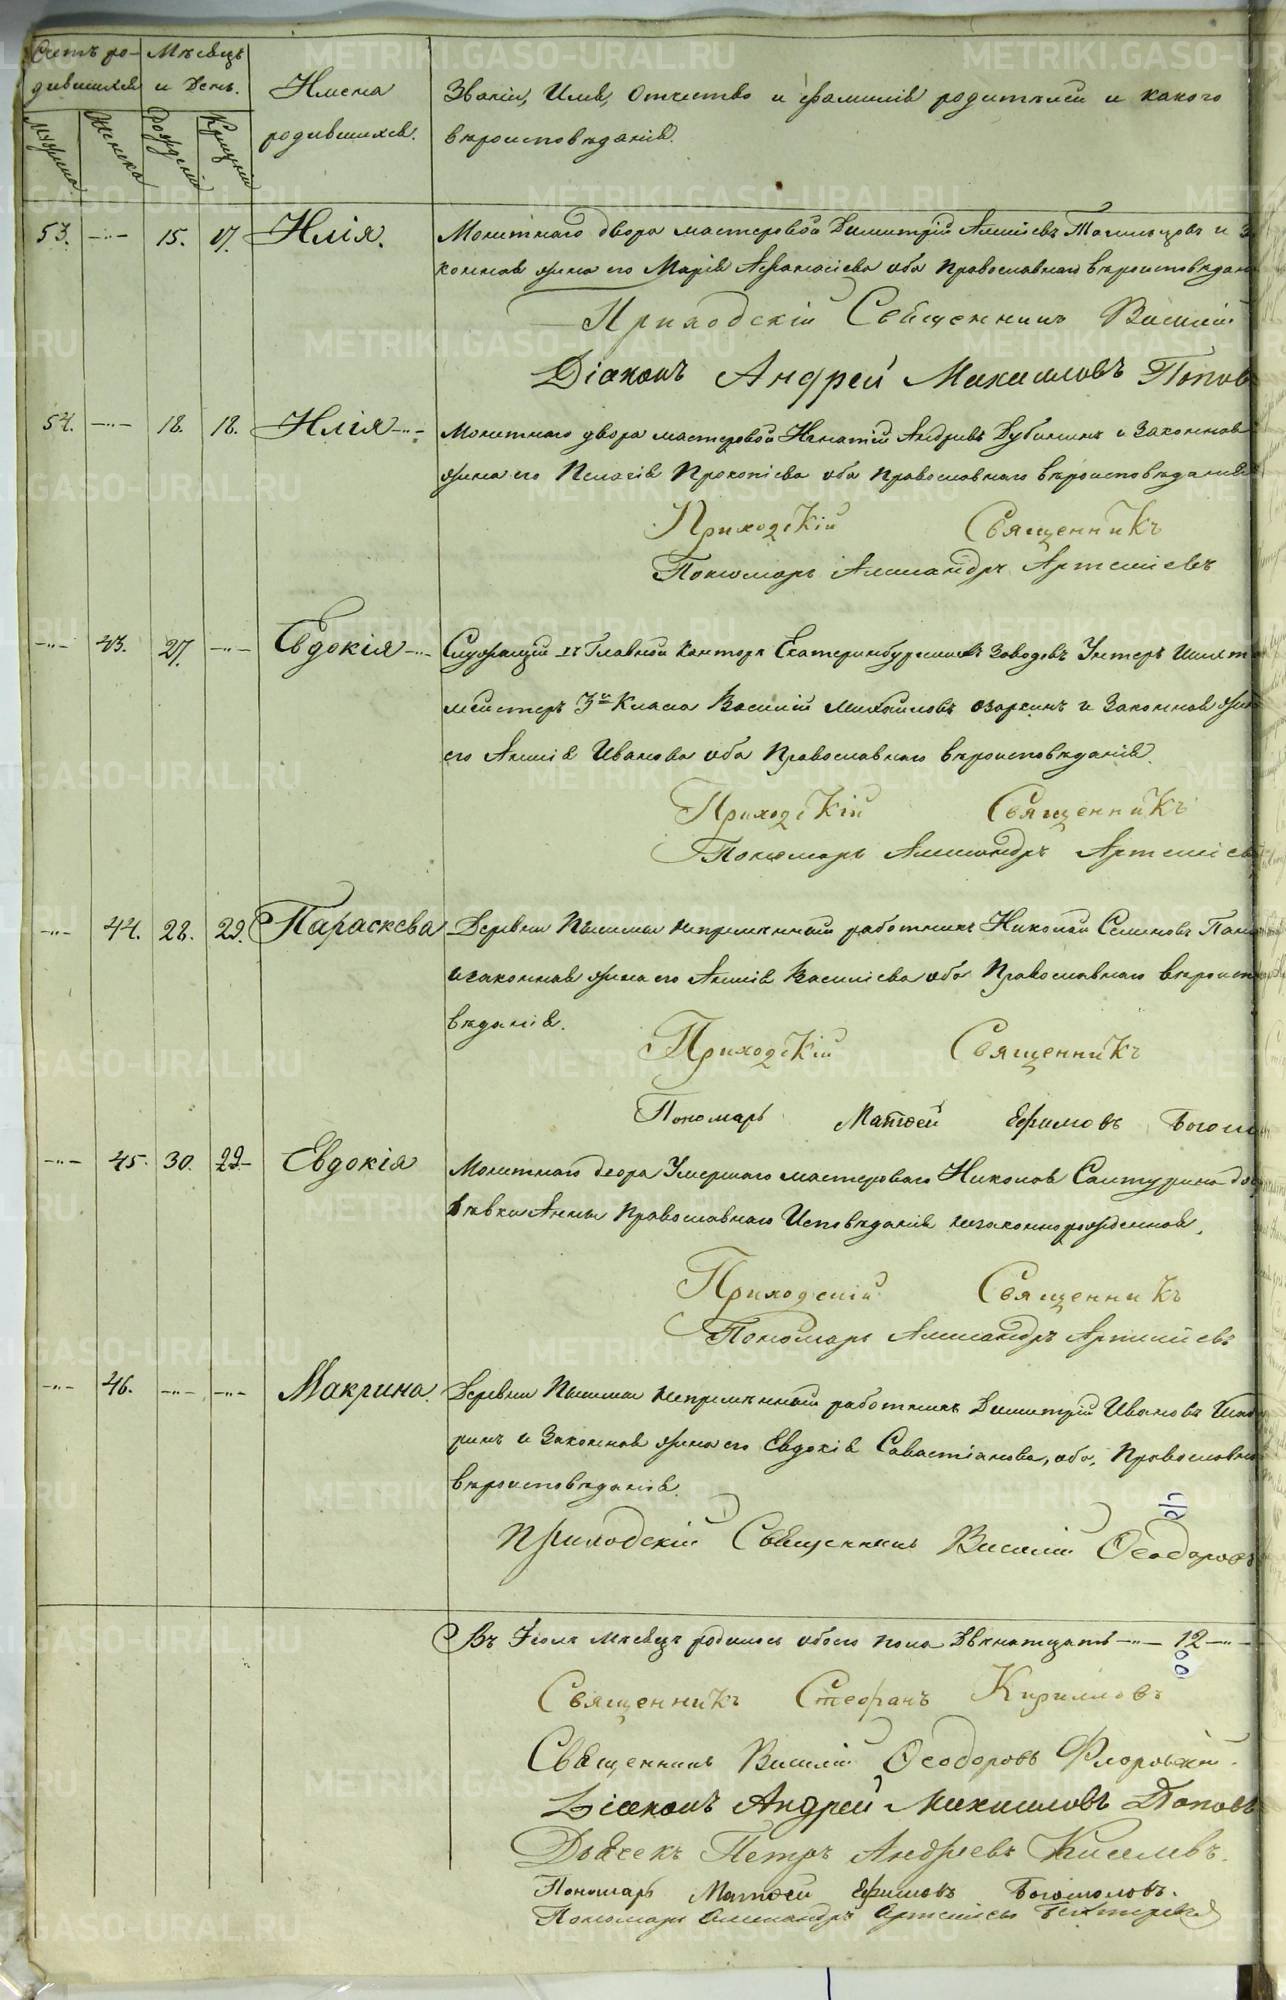 Счетъ ро- Мѣсяцъ
дившихся и День.
Имена
родившихся.
Званія, Имя, Отчество и фамилія родителей и какого
вѣроисповѣданія.
Мужеска Женска Рожденія Крещенія
53. —"— 15. 17. Илія. Монетнаго двора мастеровой Димитрій
конная жена его Марія Афанасіева оба Православнаго вѣроисповѣдан
Приходскій Священникъ Василій
Діаконъ Андрей Михаиловъ Попов
54. —"— 18. 18. Илія —"— Монетнаго двора мастеровой Игнатій Андреевъ Дубининъ и Законная
жена его Пелагія Прокопіева оба Православнаго вѣроисповѣданія
Приходскій Священникъ
Пономарь Александръ Артеміевъ
—"— 43. 27. —"— Евдокія —"— Служащій въ Главной Конторѣ Екатеринбургскихъ Заводовъ Унтеръ Шихт
мейстеръ 3го Класа Василій Михайловъ и Законная жен
его Анна Иванова оба Православнаго вѣроисповѣданія.
Приходскій Священникъ
Пономарь Александръ Артеміев
—"— 44. 28. 29. Параскева Деревни Пышмы непремѣнный работникъ Николай Семеновъ
и законная жена его Анна Василіева оба Православнаго вѣроисп
вѣданія.
Приходскій Священникъ
Пономарь Матѳей Ефимовъ Богомо
—"— 45. 30. 29 — Евдокія Монетнаго двора Умершаго мастероваго Никона Сантурина до
дѣвки Анны Православнаго Исповѣданія незаконнорожденная.
Приходскій Священникъ
Пономарь Александръ Артеміевъ
—"— 46. —"— —"— Макрина. Деревни Пышмы непремѣнный работникъ Димитрій Ивановъ
ринъ и Законная жена его Евдокія Савастіанова, оба, Православна
вѣроисповѣданія.
Приходскій Священникъ Василій Ѳеодоровъ
Въ Іюлѣ мѣсяцѣ родилось обоего пола Двенатцать —"— 12 —"—
Священникъ Стефанъ Кирилловъ
Священникъ Василій Ѳеодоровъ Флоровскій.
Діаконъ Андрей Михаиловъ Поповъ
Дьячекъ Петръ Андреевъ Киселевъ.
Пономарь Матѳей Ефимовъ Богомоловъ.
Пономарь Александръ Артеміевъ
METRIKI.GASO-URAL.RU